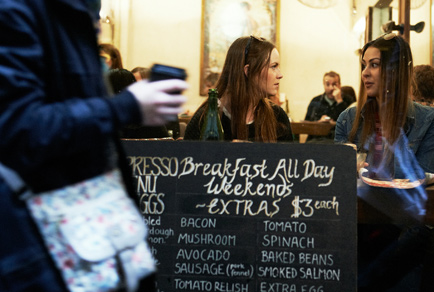 PRESSO
NU
GGS
Breakfast All Day
Weekends
~EXTRAS $3 each
BACON
MUSHROOM
AVOCADO
SAUSAGE (pork fennel)
TOMATO RELISH
TOMATO
SPINACH
BAKED BEANS
SMOKED SALMON
EXTRA EGG